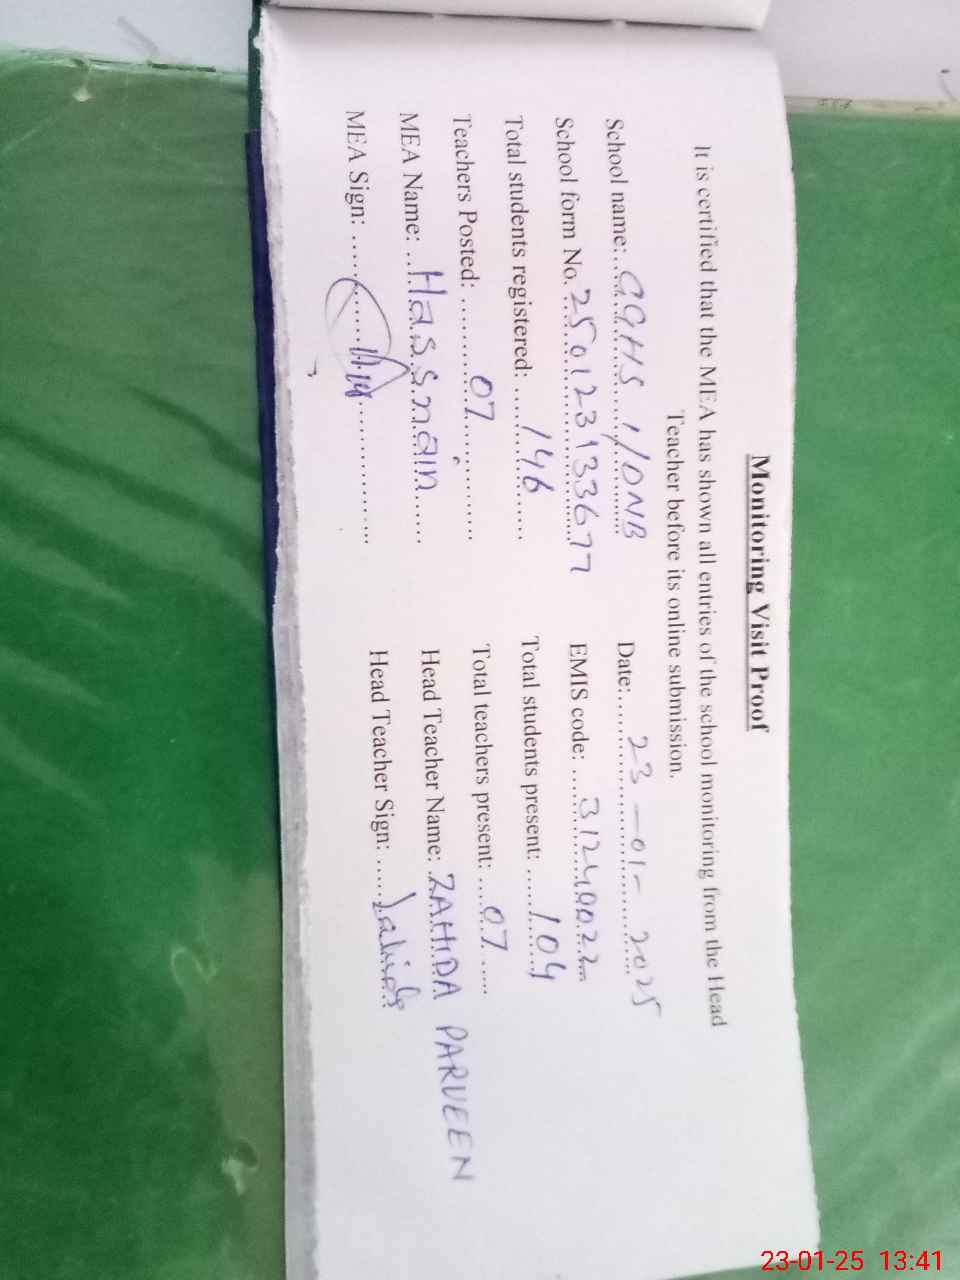 Monitoring Visit Proof
It is certified that the MEA has shown all entries of the school monitoring from the Head
Teacher before its online submission.
School name: GGHS 1/0NB Date: 23-01-2025
School form No. 250123133677 EMIS code: 31240022
Total students registered: 146 Total students present: 104
Teachers Posted: 07 Total teachers present: 07
MEA Name: Hassnain Head Teacher Name: ZAHIDA PARVEEN
MEA Sign: Head Teacher Sign: Zahida
23-01-25 13:41